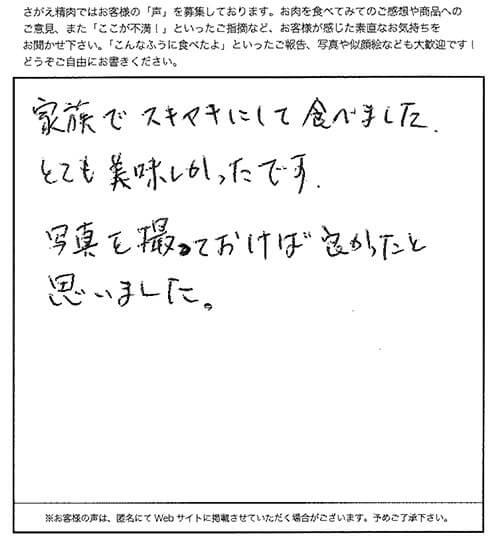 さがえ精肉ではお客様の「声」を募集しております。お肉を食べてみてのご感想や商品への
ご意見、また「ここが不満！」といったご指摘など、お客様が感じた素直なお気持ちを
お聞かせ下さい。「こんなふうに食べたよ」といったご報告、写真や似顔絵なども大歓迎です！
どうぞご自由にお書きください。
家族でスキヤキにして食べました.
とても美味しかったです.
写真を撮っておけば良かったと
思いました。
※お客様の声は、匿名にてWebサイトに掲載させていただく場合がございます。予めご了承下さい。